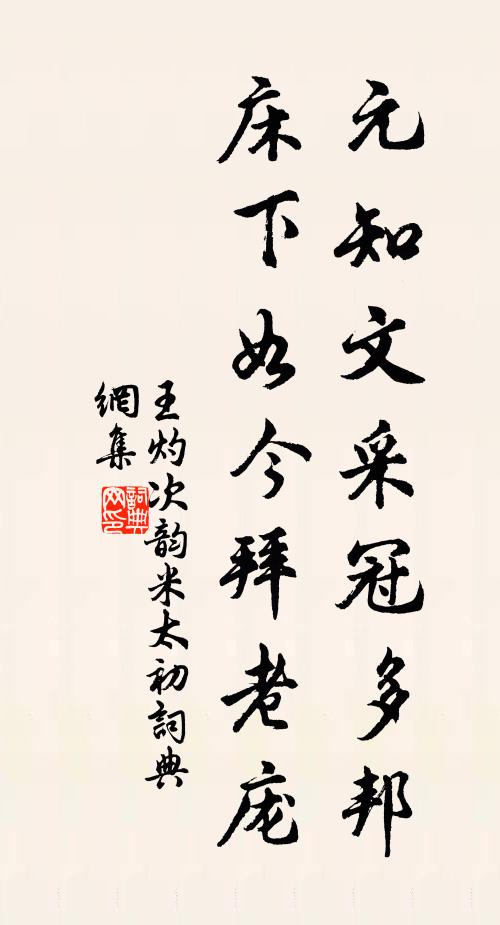 元知文采冠多邦
床下如今拜老庞
王灼次韵米太初詞典
網集
詞典网印